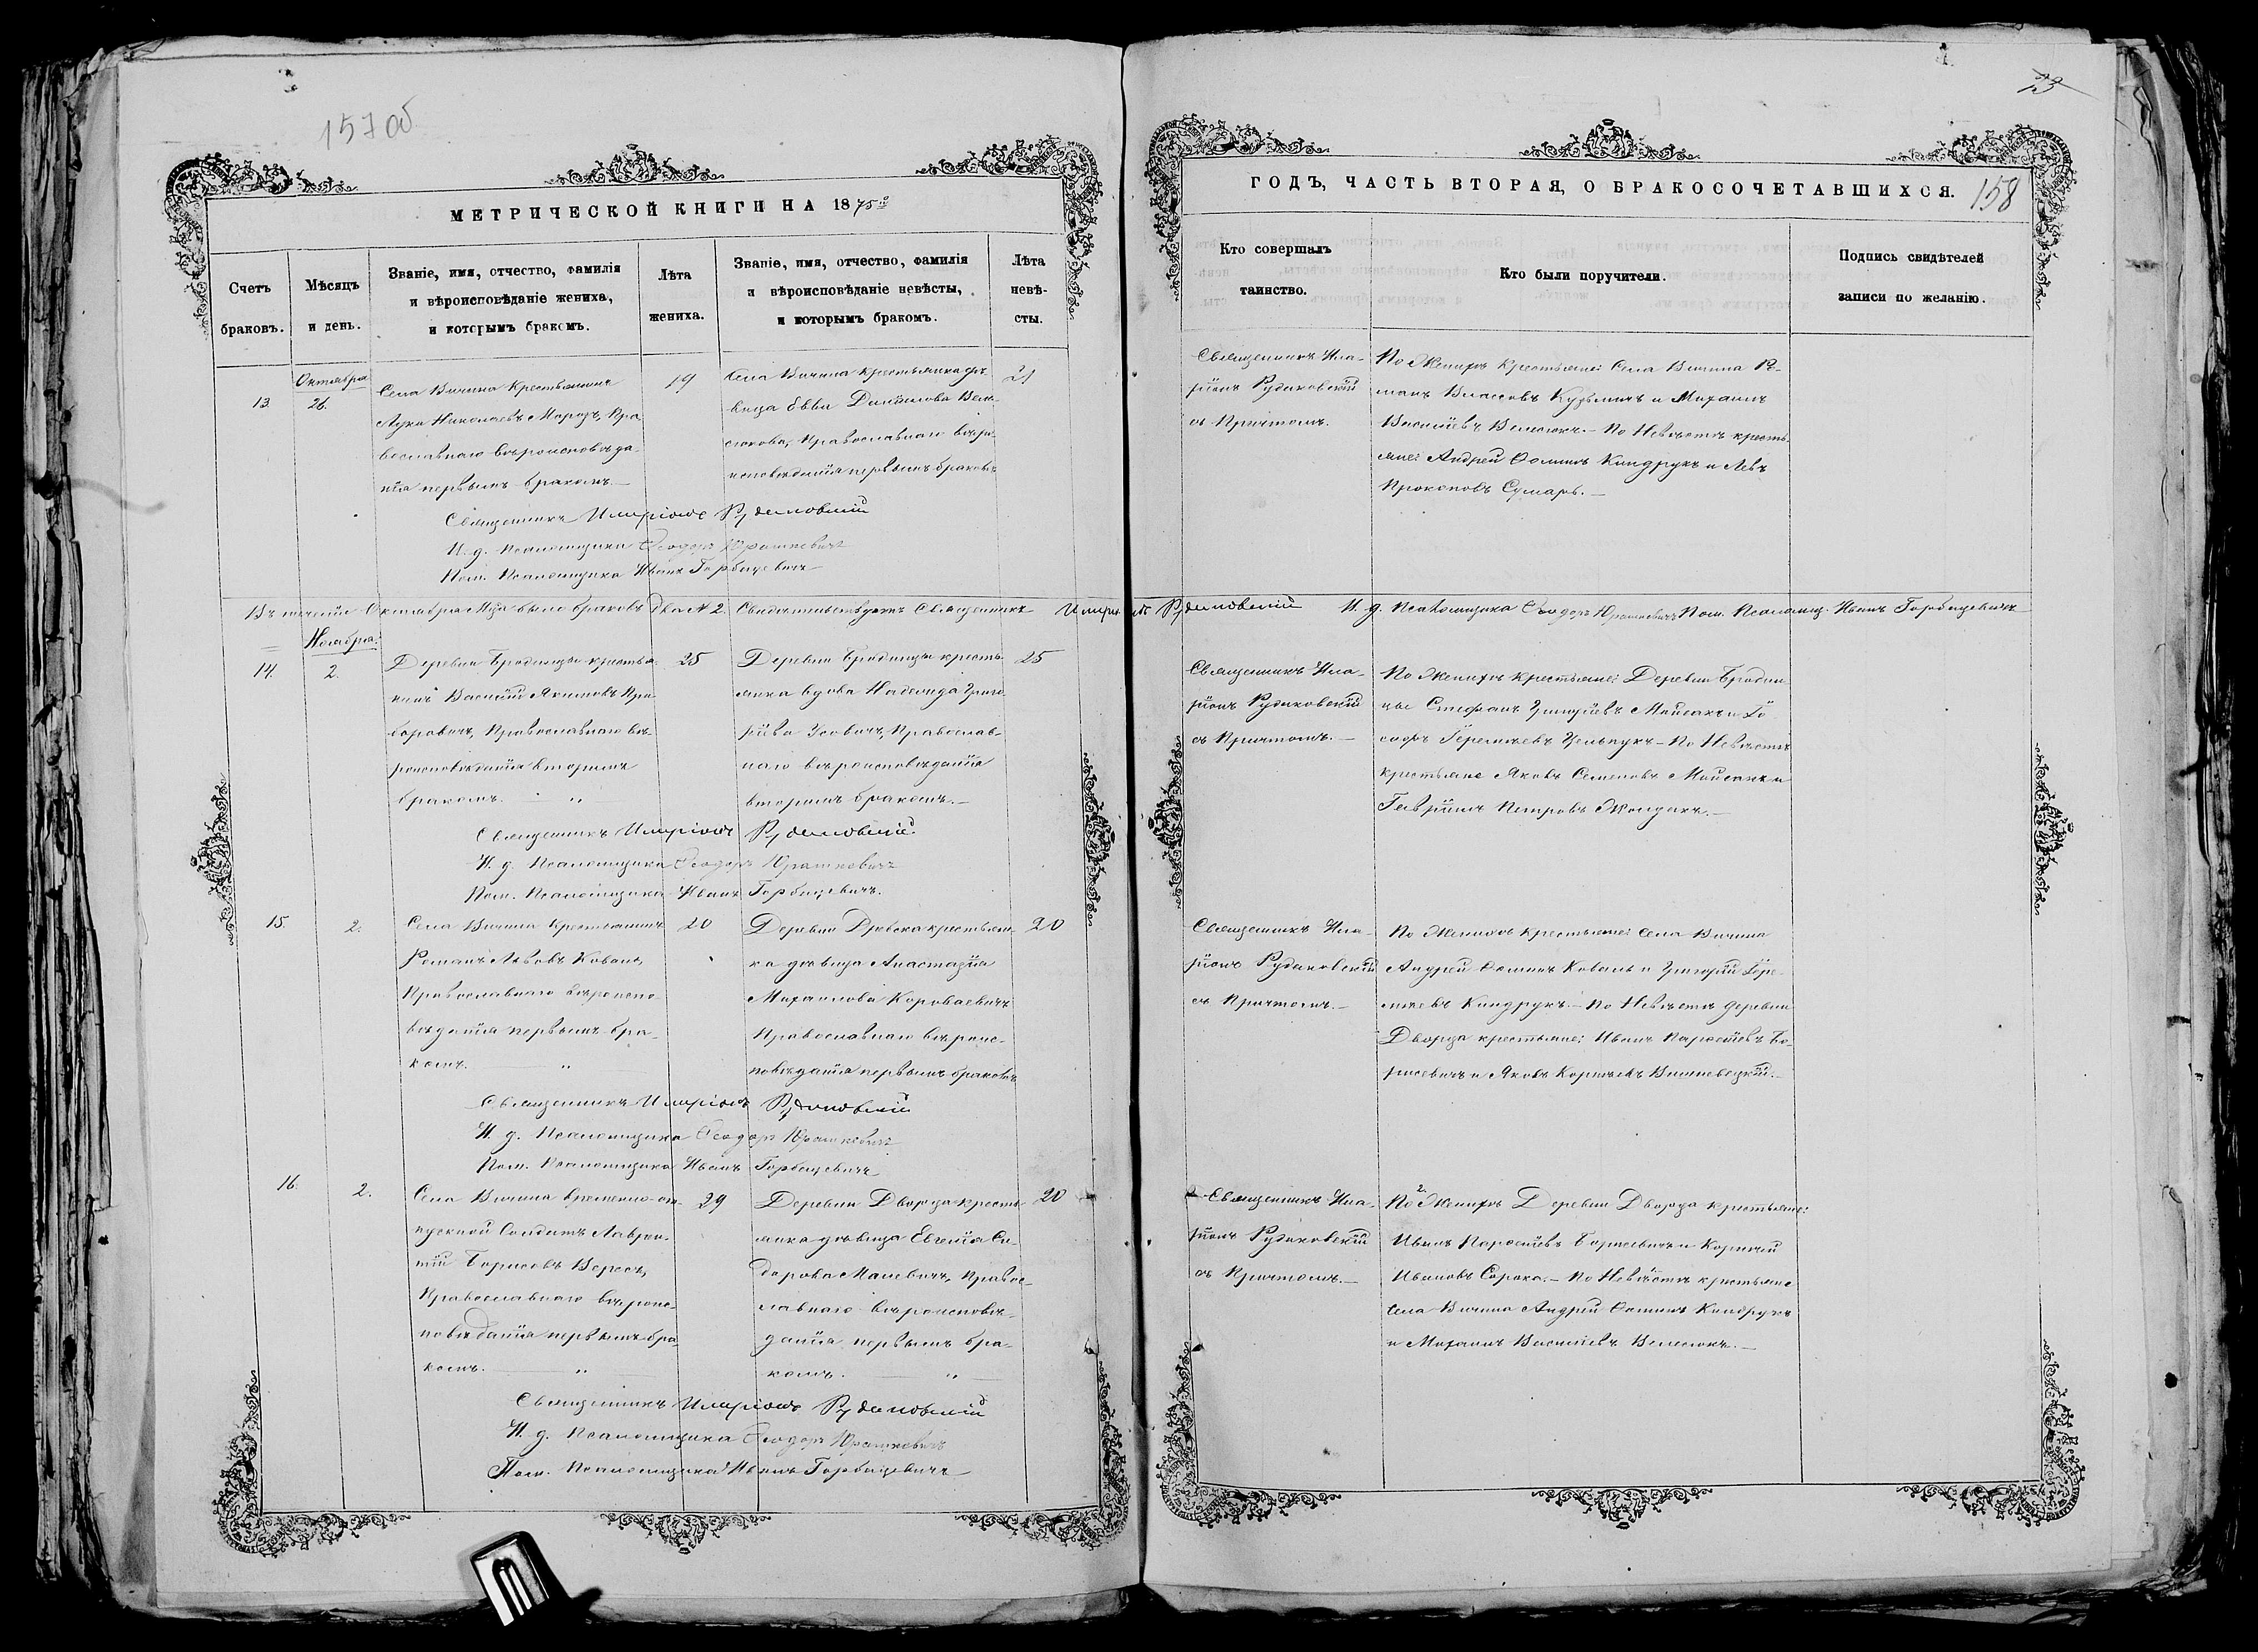 157 об
МЕТРИЧЕСКОЙ КНИГИ НА 1875й
Счетъ
браковъ.
Мѣсяцъ
и день.
Званіе, имя, отчество, фамилія
и вѣроисповѣданіе жениха,
и которымъ бракомъ.
Лѣта
жениха.
Званіе, имя, отчество, фамилія
и вѣроисповѣданіе невѣсты,
и которымъ бракомъ.
Лѣта
невѣ-
сты.
13.
Октября
26.
Села Вичина крестьянинъ
Лука Николаевъ Морозъ, Пра
вославнаго вѣроисповѣда-
нія первымъ бракомъ.—
19
Села Вичина крестьянка дѣ-
вица Евва Даніилова Веле-
сюкова, Православнаго вѣро-
исповѣданія первымъ бракомъ
21
Священникъ Иларіонъ Рудаковскій
И. д. Псаломщика Ѳеодоръ Юрашкевичъ
Пом. Псаломщика Иванъ Горбацевичъ
Въ теченіи Октября М-ца было браковъ два № 2. Свидѣтельствуетъ Священникъ Иларіонъ Рудаковскій И. д. Псаломщика Ѳеодоръ Юрашкевичъ Пом. Псаломщ. Иванъ Горбацевичъ
Ноября:
14.
2.
Деревни Бродницы крестья-
нинъ Василій Якимовъ При-
боровичъ, Православнаго вѣ-
роисповѣданія вторымъ
бракомъ.
25
Деревни Бродницы кресть-
янка вдова Надежда Григо
ріева Усовичъ, Православ-
наго вѣроисповѣданія
вторымъ бракомъ.—
25
Священникъ Иларіонъ Рудаковскій
И. д. Псаломщика Ѳеодоръ Юрашкевичъ
Пом. Псаломщика Иванъ Горбацевичъ.
15.
2.
Села Вичина Крестьянинъ
Романъ Львовъ Коваль,
Православнаго вѣроиспо-
вѣданія первымъ бра-
комъ.
20
Деревни крестьян-
ка дѣвица Анастазія
Михаилова Короваевичъ
Православнаго вѣроис-
повѣданія первымъ бракомъ
20
Священникъ Иларіонъ Рудаковскій
И. д. Псаломщика Ѳеодоръ Юрашкевичъ
Пом. Псаломщика Иванъ Горбацевичъ
16.
2.
Села Вичина временно-от-
пускной Солдатъ Лаврен-
тій Борисовъ Вересъ,
Православнаго вѣроис-
повѣданія первымъ бра-
комъ.
29
Деревни Дворца кресть-
янка дѣвица Евгенія Си-
дорова Мацевичъ, Правос-
лавнаго вѣроисповѣ-
данія первымъ бра-
комъ.
20
Священникъ Иларіонъ Рудаковскій
И. д. Псаломщика Ѳеодоръ Юрашкевичъ
Пом. Псаломщика Иванъ Горбацевичъ
158
ГОДЪ, ЧАСТЬ ВТОРАЯ, О БРАКОСОЧЕТАВШИХСЯ.
Кто совершалъ
таинство.
Кто были поручители.
Подпись свидѣтелей
записи по желанію.
Священникъ Ила-
ріонъ Рудаковскій
съ Причтомъ.
По Женихѣ крестьяне: Села Вичина Ро-
манъ Власовъ Кузьмичъ и Михаилъ
Василіевъ Велесюкъ.— По Невѣстѣ кресть-
яне: Андрей Ѳоминъ Киндрукъ и Левъ
Прокоповъ Сумаръ.—
Священникъ Ила-
ріонъ Рудаковскій
съ Причтомъ.—
По Женихѣ крестьяне: Деревни Бродни
цы Стефанъ Григоріевъ Майсакъ и Іо
сифъ Іереміевъ Цельпукъ — По Невѣстѣ
крестьяне Яковъ Семеновъ Майсакъ и
Гавріилъ Петровъ Жолдакъ.—
Священникъ Ила-
ріонъ Рудаковскій
съ Причтомъ.—
По Женихѣ крестьяне: Села Вичина
Андрей Ѳоминъ Коваль и Григорій Іере-
міевъ Киндрукъ.— По Невѣстѣ деревни
Дворца крестьяне: Иванъ Бо-
рисевичъ и Яковъ Корнѣевъ Вишневецкій.—
Священникъ Ила-
ріонъ Рудаковскій
съ Причтомъ.—
По Женихѣ Деревни Дворца крестьяне:
Иванъ Борисевичъ и Корнилій
Ивановъ Сорока.— По Невѣстѣ крестьяне
Села Вичина Андрей Ѳоминъ Киндрукъ
и Михаилъ Василіевъ Велесюкъ.—